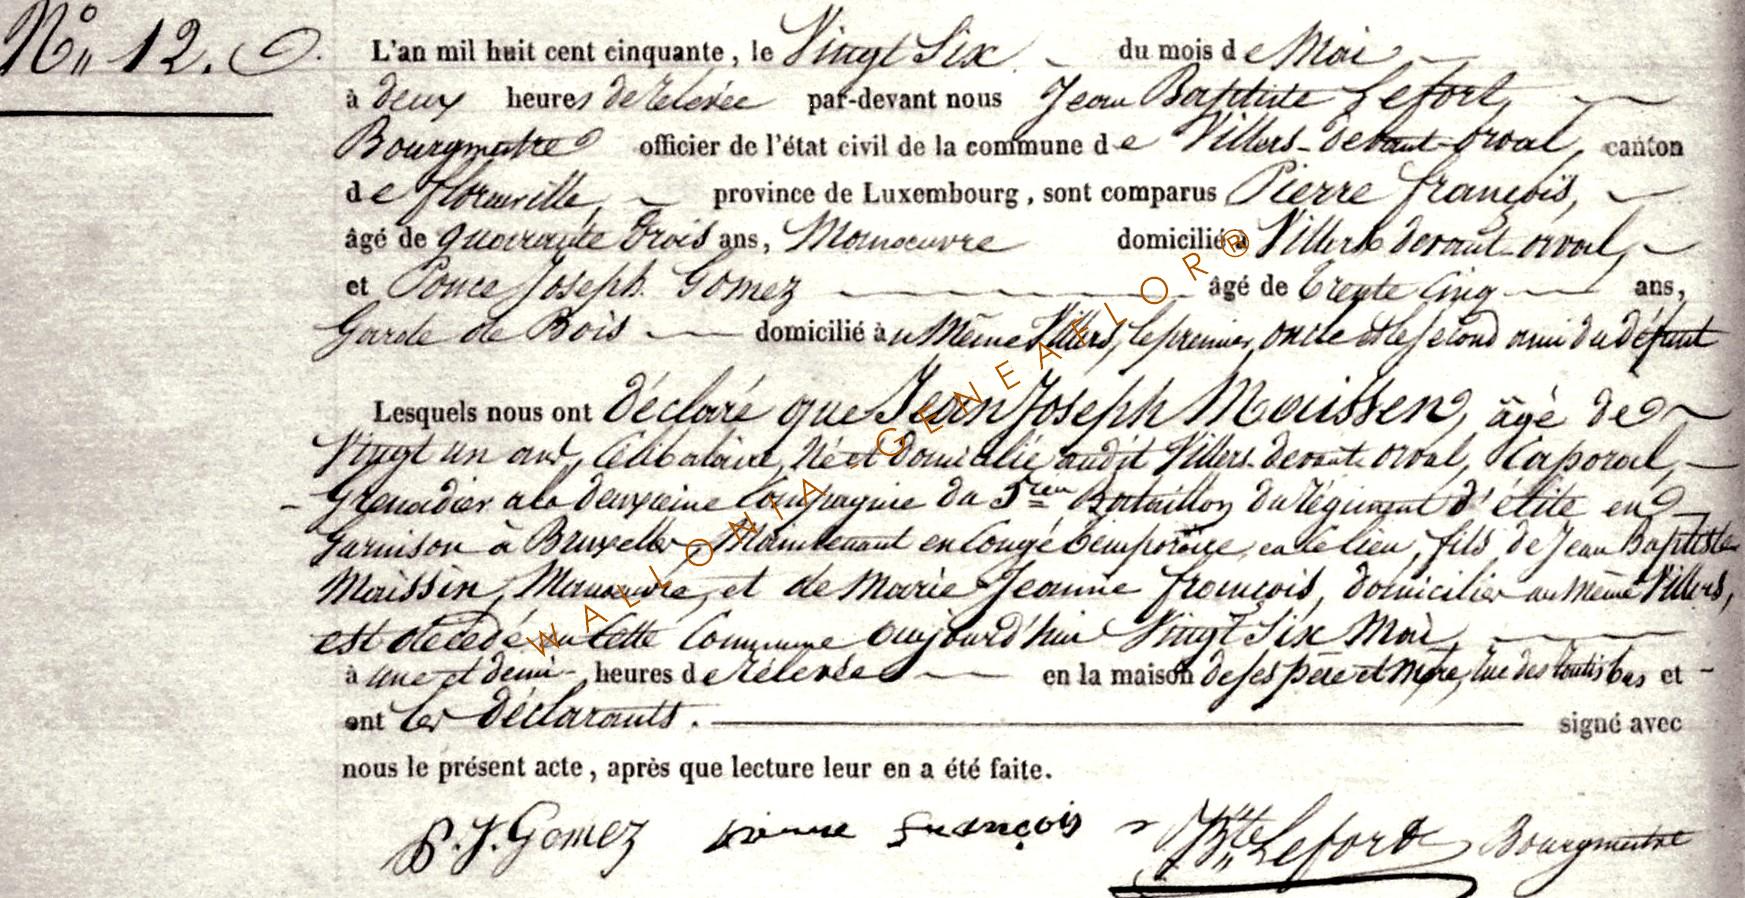 N° 12.
L'an mil huit cent cinquante, le Vingt Six du mois de Mai
à deux heures de relevée par-devant nous Jean Baptiste Lefort,
Bourgmestre officier de l'état civil de la commune de Villers-devant-orval, canton
de florenville, province de Luxembourg, sont comparus Pierre françois,
âgé de quarante trois ans, Manoeuvre domicilié à Villers devant orval,
et Ponce Joseph Gomez âgé de trente cinq ans,
Garde de Bois domicilié au Même Villers, le premier, oncle et le second ami du défunt
Lesquels nous ont déclaré que Jean Joseph Maissen, âgé de
Vingt un ans, Célibataire, Né et domicilié audit Villers-devant-orval, Caporal,
Grenadier a la deuxième Compagnie du Bataillon du régiment d'élite en
Garnison à Bruxelles, Maintenant en Congé temporaire, en ce lieu, fils de Jean Baptiste
Maissin, Manoeuvre, et de Marie Jeanne françois, domicilier au même Villers,
est décédé en Cette Commune aujourd'hui Vingt Six Mai,
à une et demi heures de relevée en la maison de ses père et mère, rue des bas et
ont les déclarants. signé avec
nous le présent acte, après que lecture leur en a été faite.
P. J. Gomez Pierre françois J Bte Lefort Bourgmestre
WALLONIA - GENEAFLOR®